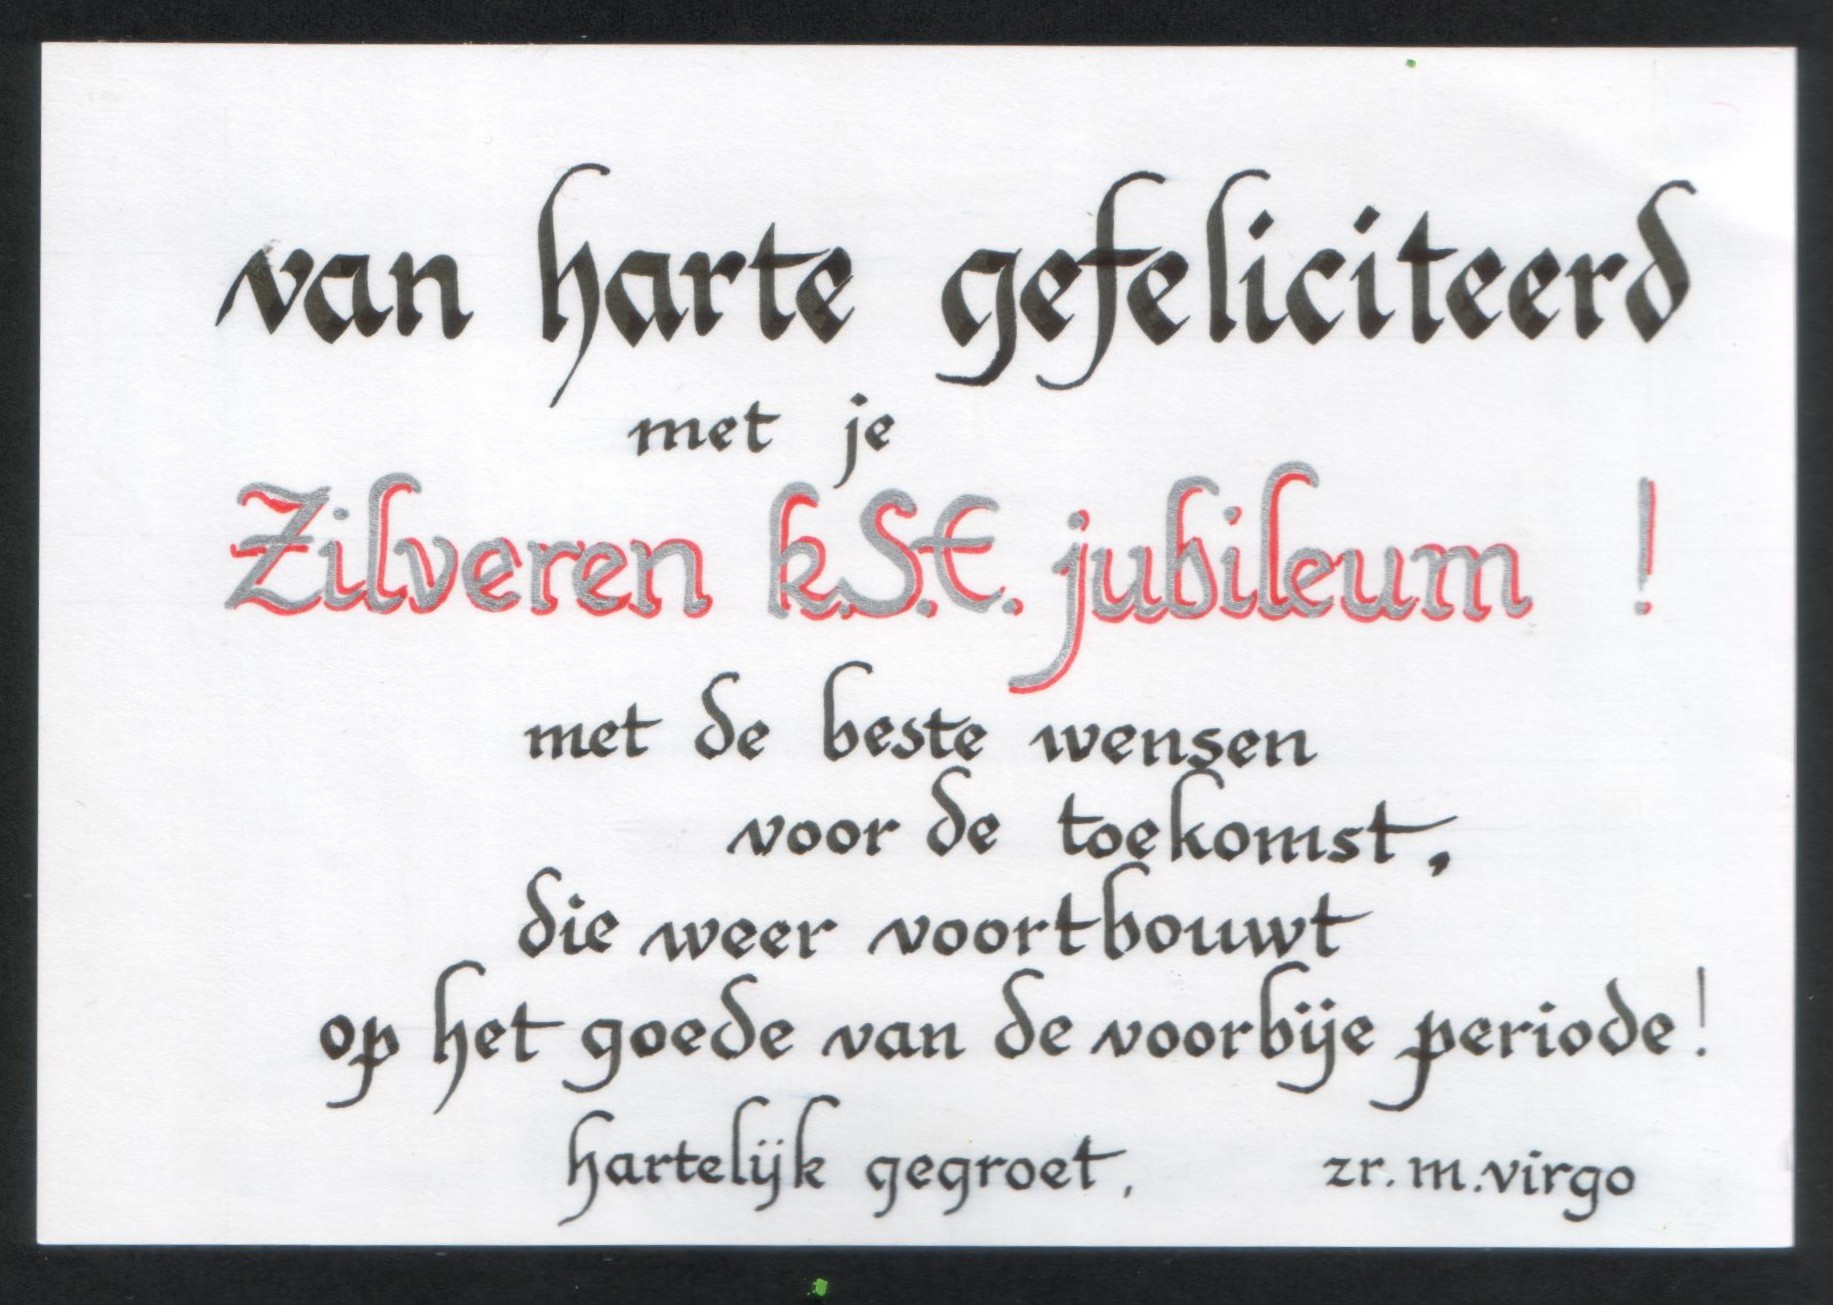 van harte gefeliciteerd
met je
Zilveren k.S.E. jubileum !
met de beste wensen
voor de toekomst,
die weer voortbouwt
op het goede van de voorbije periode!
hartelijk gegroet, zr. m. virgo